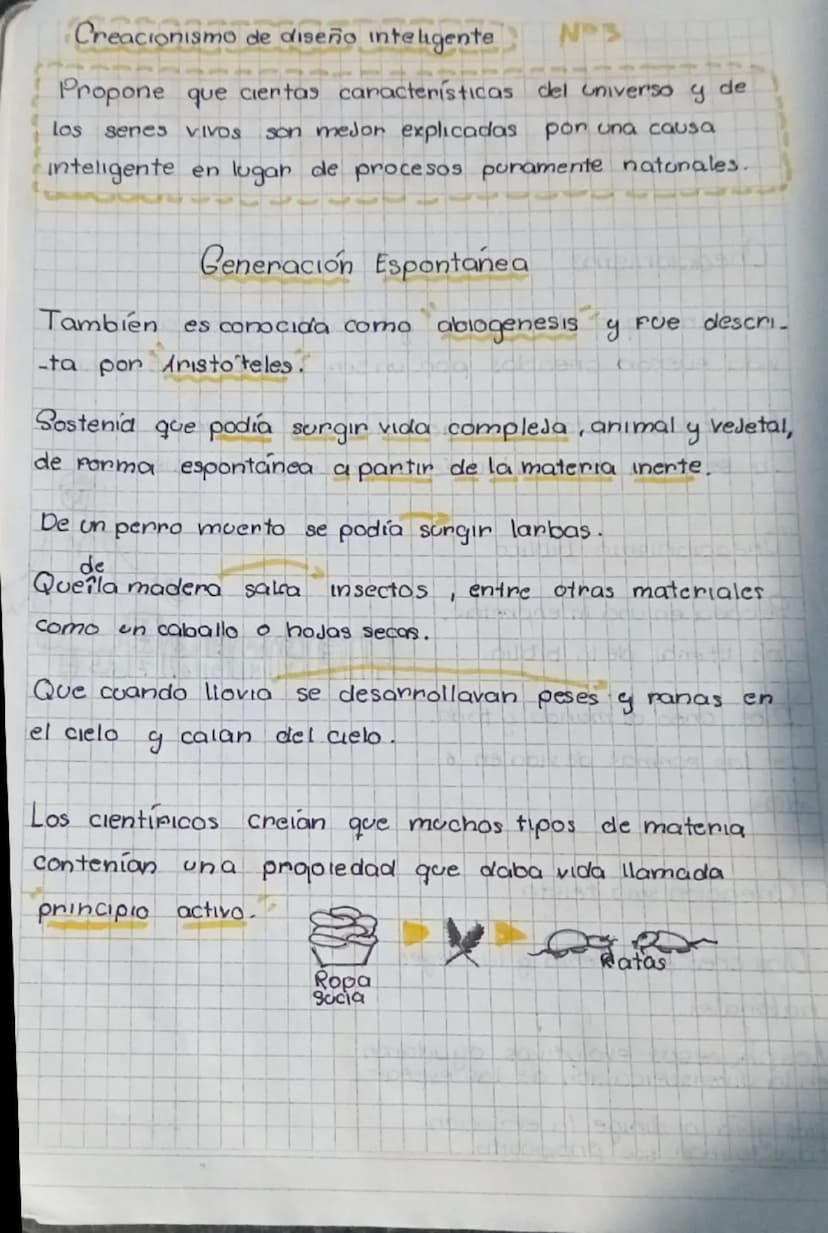 Creacionismo de diseño inteligente N°3
Propone que ciertas características del universo y de
los seres vivos son mejor explicadas por una causa
inteligente en lugar de procesos puramente naturales.
Generación Espontánea
También es conocida como "abiogenesis" y fue descri-
-ta por "Aristo'teles."
Sostenía que podía surgir vida compleja, animal y vejetal,
de forma espontánea a partir de la materia inerte.
De un perro muerto se podía surgir larbas.
Que de la madera salía insectos, entre otras materiales
como un caballo o hojas secas.
Que cuando llovia se desarrollavan peses y ranas en
el cielo y caian del cielo.
Los científicos creían que muchos tipos de materia
contenían una propiedad que daba vida llamada
"principio activo."
Ropa
sucia
Ratas